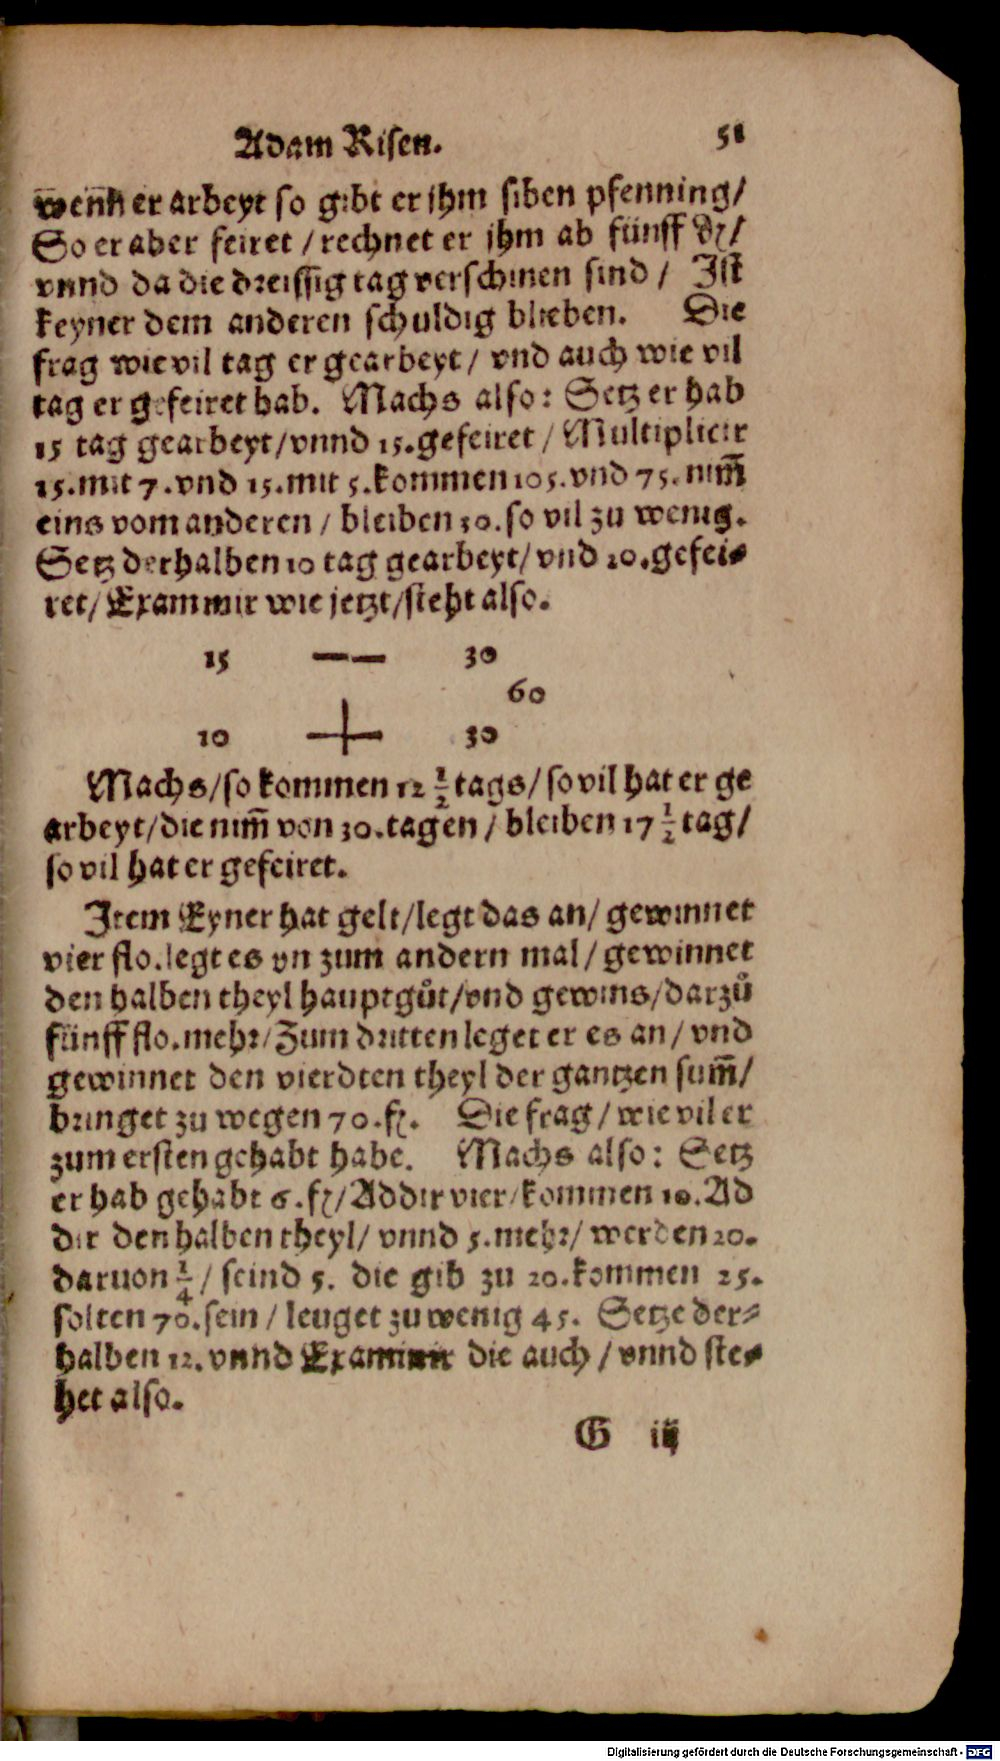 Adam Risen. 51
wenn er arbeyt so gibt er jhm siben pfenning/
So er aber feiret / rechnet er jhm ab fünff ₰/
vnnd da die dreissig tag verschinen sind / Jst
keyner dem anderen schuldig blieben. Die
frag wie vil tag er gearbeyt / vnd auch wie vil
tag er gefeiret hab. Machs also: Setz er hab
15 tag gearbeyt/vnnd 15.gefeiret / Multiplicir
15.mit 7.vnd 15.mit 5.kommen 105.vnd 75.nim̃
eins vom anderen / bleiben 30.so vil zu wenig.
Setz derhalben 10 tag gearbeyt/ vnd 20.gefei-
ret/ Examinir wie jetzt/steht also.
15 —— 30
60
10 —|— 30
Machs/so kommen 12 1/2 tags/ so vil hat er ge
arbeyt/die nim̃ von 30.tagen / bleiben 17 1/2 tag/
so vil hat er gefeiret.
Jtem Eyner hat gelt/legt das an/ gewinnet
vier flo.legt es yn zum andern mal / gewinnet
den halben theyl hauptgůt/vnd gewins/darzů
fünff flo.mehr/Zum dritten leget er es an/ vnd
gewinnet den vierdten theyl der gantzen sum̃/
bringet zu wegen 70.fl. Die frag / wie vil er
zum ersten gehabt habe. Machs also: Setz
er hab gehabt 6.fl/Addir vier/kommen 10.Ad
dir den halben theyl/ vnnd 5.mehr/ werden 20.
daruon 1/4 / seind 5. die gib zu 20.kommen 25.
solten 70.sein / leuget zu wenig 45. Setze der-
halben 12.vnnd Examinir die auch / vnnd ste-
het also.
G iij
Digitalisierung gefördert durch die Deutsche Forschungsgemeinschaft - DFG